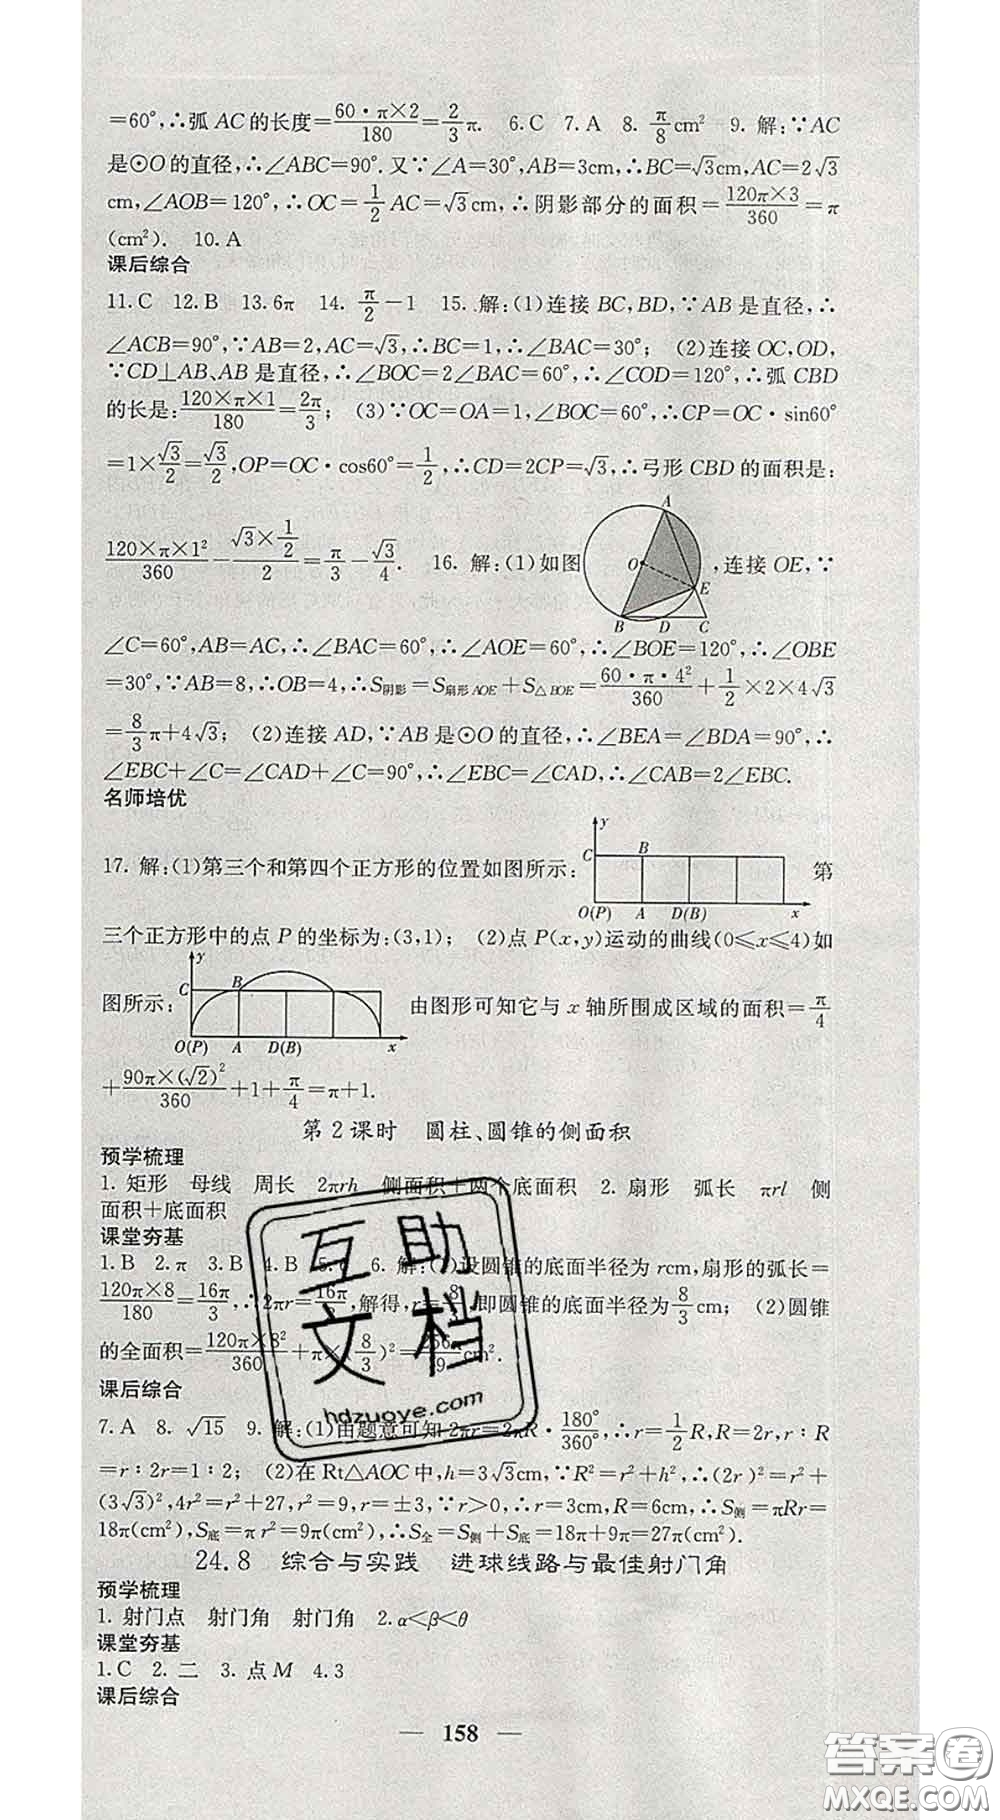 =60°,∴弧AC的长度=60·π×2/180=2/3π. 6.C 7.A 8. π/8cm² 9. 解:∵AC
是⊙O的直径,∴∠ABC=90°.又∵∠A=30°,AB=3cm,∴BC=√3cm,AC=2√3
cm,∠AOB=120°,∴OC=1/2AC=√3cm,∴阴影部分的面积=120π×3/360=π
(cm²). 10.A
课后综合
11.C 12.B 13.6π 14. π/2-1 15.解:(1)连接BC,BD,∵AB是直径,∴
∠ACB=90°,∵AB=2,AC=√3,∴BC=1,∴∠BAC=30°; (2)连接OC,OD,
∵CD⊥AB、AB是直径,∴∠BOC=2∠BAC=60°,∴∠COD=120°,∴弧CBD
的长是:120×π×1/180=2π/3; (3)∵OC=OA=1,∠BOC=60°,∴CP=OC·sin60°
=1×√3/2=√3/2,OP=OC·cos60°=1/2,∴CD=2CP=√3,∴弓形CBD的面积是:
120×π×1²/360-(√3×1/2)/2=π/3-√3/4. 16.解:(1)如图 A O E B D C ,连接OE,∵
∠C=60°,AB=AC,∴∠BAC=60°,∴∠AOE=60°,∴∠BOE=120°,∴∠OBE
=30°,∵AB=8,∴OB=4,∴S阴影=S扇形AOE+S△BOE=60·π·4²/360+1/2×2×4√3
=8/3π+4√3; (2)连接AD,∵AB是⊙O的直径,∴∠BEA=∠BDA=90°,∴
∠EBC+∠C=∠CAD+∠C=90°,∴∠EBC=∠CAD,∴∠CAB=2∠EBC.
名师培优
17. 解:(1)第三个和第四个正方形的位置如图所示: y C B O(P) A D(B) x 第
三个正方形中的点P的坐标为:(3,1); (2)点P(x,y)运动的曲线(0≤x≤4)如
图所示: y C B O(P) A D(B) x 由图形可知它与x轴所围成区域的面积=π/4
+90π×(√2)²/360+1+π/4=π+1.
第2课时 圆柱、圆锥的侧面积
预学梳理
1. 矩形 母线 周长 2πrh 侧面积+两个底面积 2. 扇形 弧长 πrl 侧
面积+底面积
课堂夯基
1.B 2.π 3.B 4.B 5.6 6. 解:(1)设圆锥的底面半径为rcm,扇形的弧长=
120π×8/180=16π/3,∴2πr=16π/3,解得,r=8/3,即圆锥的底面半径为8/3cm; (2)圆锥
的全面积=120π×8²/360+π×(8/3)²=256π/9cm².
课后综合
7.A 8. √15 9. 解:(1)由题意可知2πr=2πR·180°/360°,∴r=1/2R,R=2r,r:R
=r:2r=1:2; (2)在Rt△AOC中,h=3√3cm,∵R²=r²+h²,∴(2r)²=r²+
(3√3)²,4r²=r²+27,r²=9,r=±3,∵r>0,∴r=3cm,R=6cm,∴S侧=πRr=
18π(cm²),S底=πr²=9π(cm²),∴S全=S侧+S底=18π+9π=27π(cm²).
24.8 综合与实践 进球线路与最佳射门角
预学梳理
1. 射门点 射门角 射门角 2.α<β<θ
课堂夯基
1.C 2.二 3.点M 4.3
课后综合
158
互助
文档
hdzuoye.com
答案圈
MXQE.COM